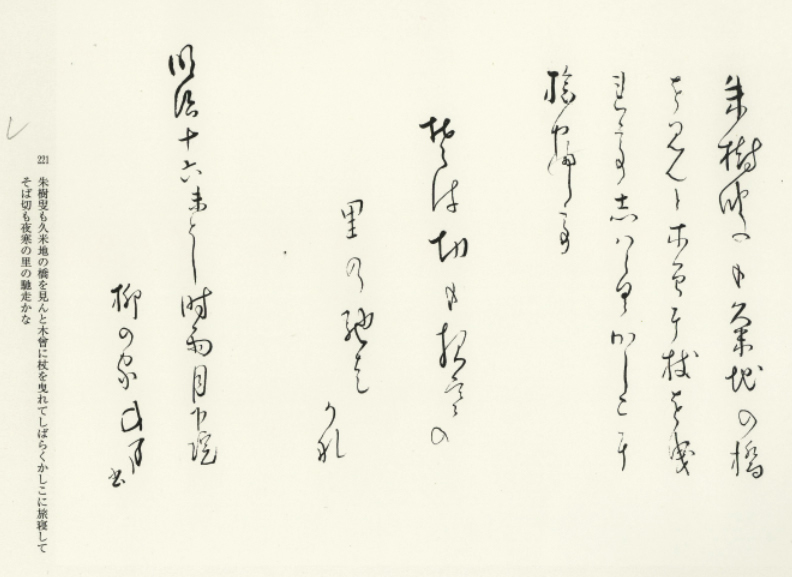 朱樹叟も久米地の橋
を見んと木曽に杖を曳
れてしばらくかしこに
旅寝して
そは切も夜寒の
里の馳走
かな
明治十六未とし時雨月下院
柳の家
221 朱樹叟も久米地の橋を見んと木曾に杖を曳れてしばらくかしこに旅寝して
そば切も夜寒の里の馳走かな